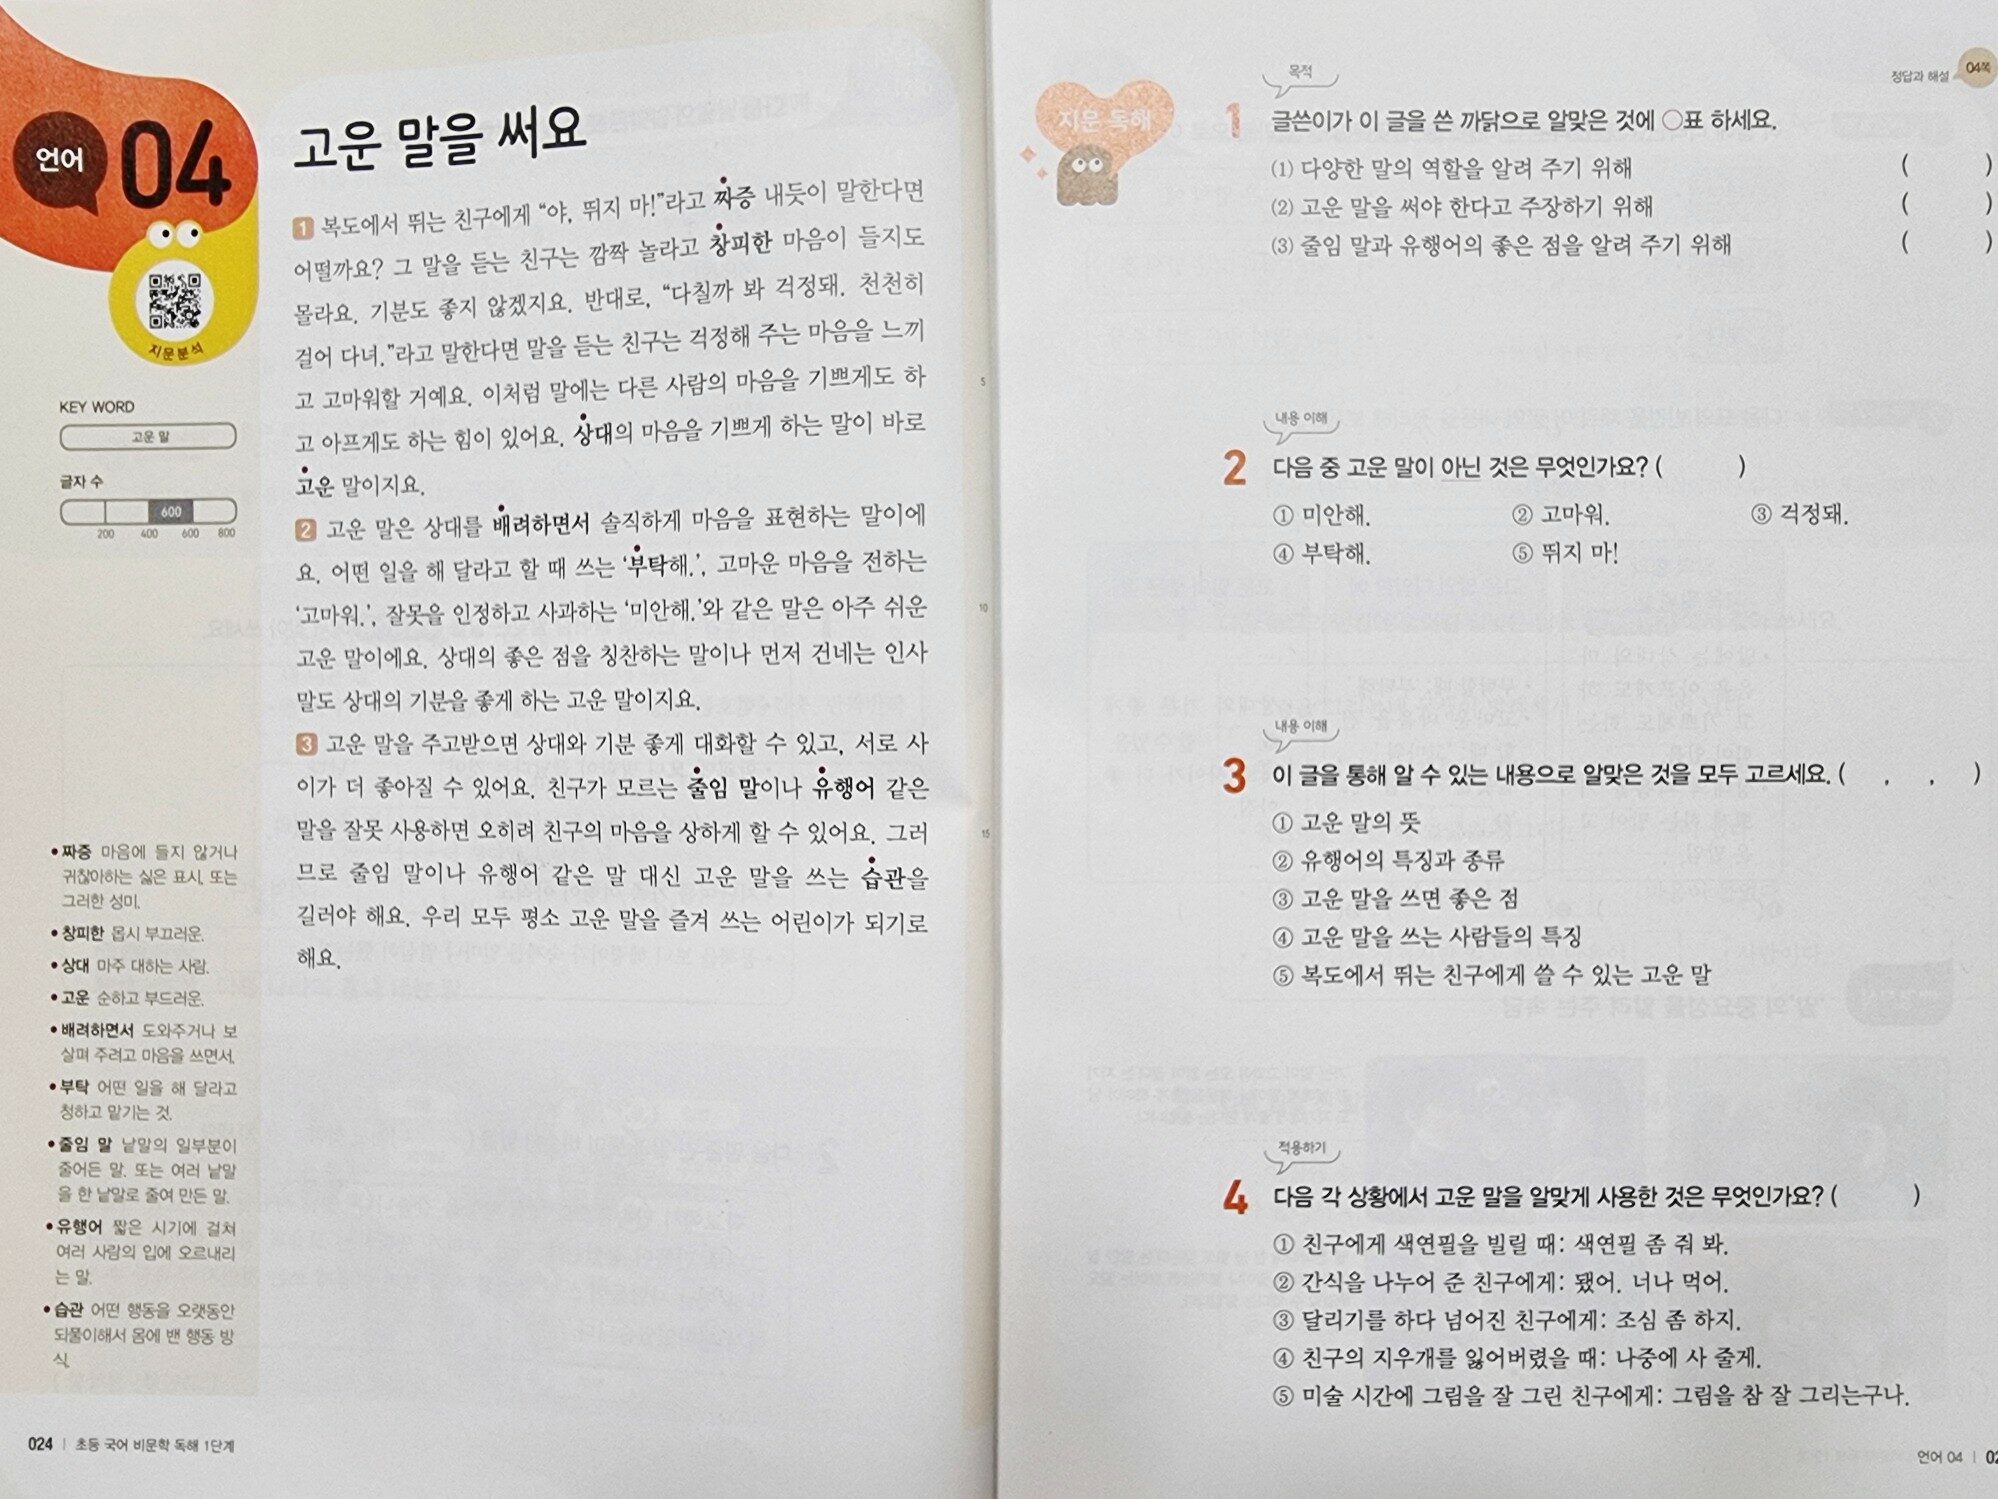 언어 04
지문분석
KEY WORD
고운 말
글자 수
600
200 400 600 800
• 짜증 마음에 들지 않거나
귀찮아하는 싫은 표시. 또는
그러한 성미.
• 창피한 몹시 부끄러운.
• 상대 마주 대하는 사람.
• 고운 순하고 부드러운.
• 배려하면서 도와주거나 보
살펴 주려고 마음을 쓰면서.
• 부탁 어떤 일을 해 달라고
청하고 맡기는 것.
• 줄임 말 낱말의 일부분이
줄어든 말. 또는 여러 낱말
을 한 낱말로 줄여 만든 말.
• 유행어 짧은 시기에 걸쳐
여러 사람의 입에 오르내리
는 말.
• 습관 어떤 행동을 오랫동안
되풀이해서 몸에 밴 행동 방
식.
024 | 초등 국어 비문학 독해 1단계
고운 말을 써요
1 복도에서 뛰는 친구에게 “야, 뛰지 마!”라고 짜증 내듯이 말한다면
어떨까요? 그 말을 듣는 친구는 깜짝 놀라고 창피한 마음이 들지도
몰라요. 기분도 좋지 않겠지요. 반대로, “다칠까 봐 걱정돼. 천천히
걸어 다녀.”라고 말한다면 말을 듣는 친구는 걱정해 주는 마음을 느끼
고 고마워할 거예요. 이처럼 말에는 다른 사람의 마음을 기쁘게도 하
5
고 아프게도 하는 힘이 있어요. 상대의 마음을 기쁘게 하는 말이 바로
고운 말이지요.
2 고운 말은 상대를 배려하면서 솔직하게 마음을 표현하는 말이에
요. 어떤 일을 해 달라고 할 때 쓰는 ‘부탁해.’, 고마운 마음을 전하는
‘고마워.’, 잘못을 인정하고 사과하는 ‘미안해.’와 같은 말은 아주 쉬운
10
고운 말이에요. 상대의 좋은 점을 칭찬하는 말이나 먼저 건네는 인사
말도 상대의 기분을 좋게 하는 고운 말이지요.
3 고운 말을 주고받으면 상대와 기분 좋게 대화할 수 있고, 서로 사
이가 더 좋아질 수 있어요. 친구가 모르는 줄임 말이나 유행어 같은
말을 잘못 사용하면 오히려 친구의 마음을 상하게 할 수 있어요. 그러
15
므로 줄임 말이나 유행어 같은 말 대신 고운 말을 쓰는 습관을
길러야 해요. 우리 모두 평소 고운 말을 즐겨 쓰는 어린이가 되기로
해요.
정답과 해설 04쪽
지문 독해
목적
1 글쓴이가 이 글을 쓴 까닭으로 알맞은 것에 ○표 하세요.
(1) 다양한 말의 역할을 알려 주기 위해 ( )
(2) 고운 말을 써야 한다고 주장하기 위해 ( )
(3) 줄임 말과 유행어의 좋은 점을 알려 주기 위해 ( )
내용 이해
2 다음 중 고운 말이 아닌 것은 무엇인가요? ( )
① 미안해. ② 고마워. ③ 걱정돼.
④ 부탁해. ⑤ 뛰지 마!
내용 이해
3 이 글을 통해 알 수 있는 내용으로 알맞은 것을 모두 고르세요. ( , , )
① 고운 말의 뜻
② 유행어의 특징과 종류
③ 고운 말을 쓰면 좋은 점
④ 고운 말을 쓰는 사람들의 특징
⑤ 복도에서 뛰는 친구에게 쓸 수 있는 고운 말
적용하기
4 다음 각 상황에서 고운 말을 알맞게 사용한 것은 무엇인가요? ( )
① 친구에게 색연필을 빌릴 때: 색연필 좀 줘 봐.
② 간식을 나누어 준 친구에게: 됐어. 너나 먹어.
③ 달리기를 하다 넘어진 친구에게: 조심 좀 하지.
④ 친구의 지우개를 잃어버렸을 때: 나중에 사 줄게.
⑤ 미술 시간에 그림을 잘 그린 친구에게: 그림을 참 잘 그리는구나.
언어 04 |